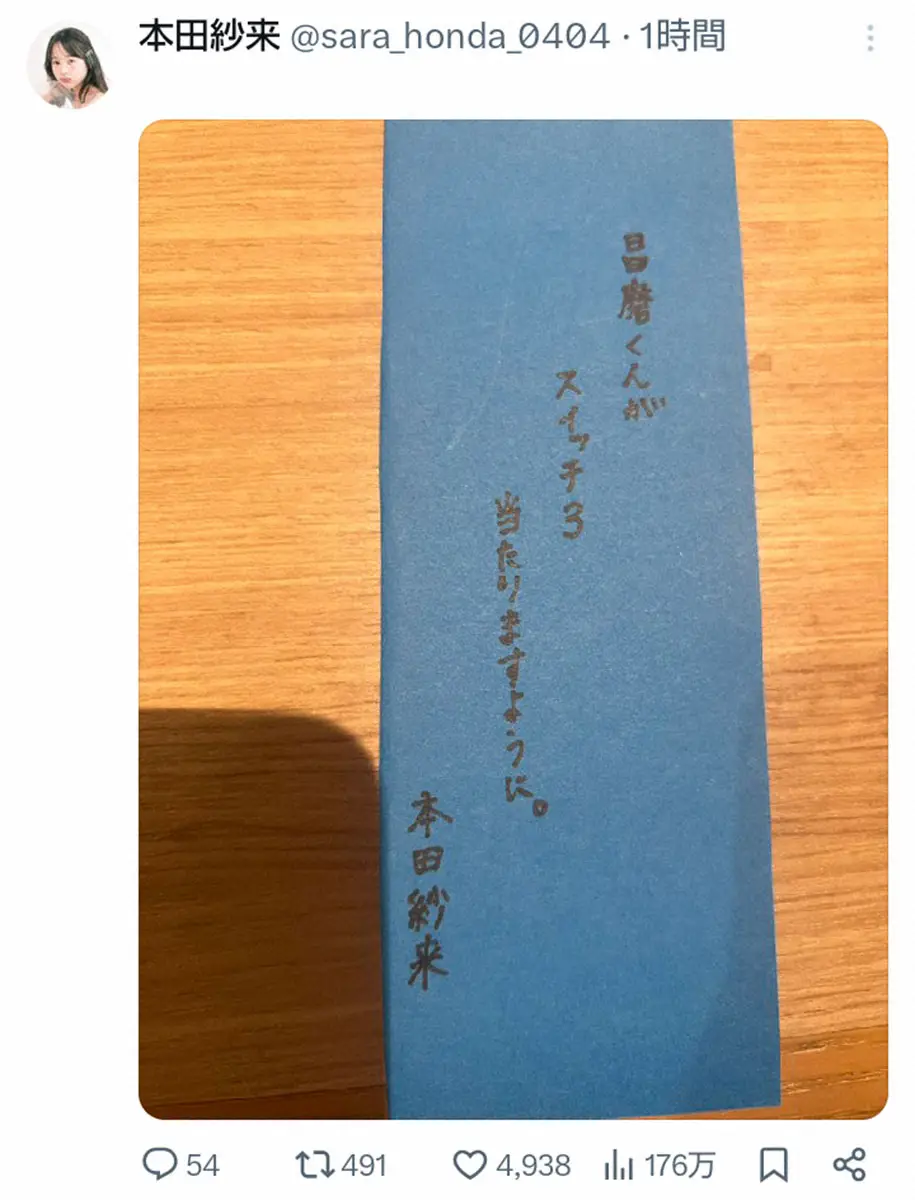 本田紗来 @sara_honda_0404 · 1時間
昌磨くんが
スイッチ3
当たりますように。
本田紗来
54 491 4,938 176万